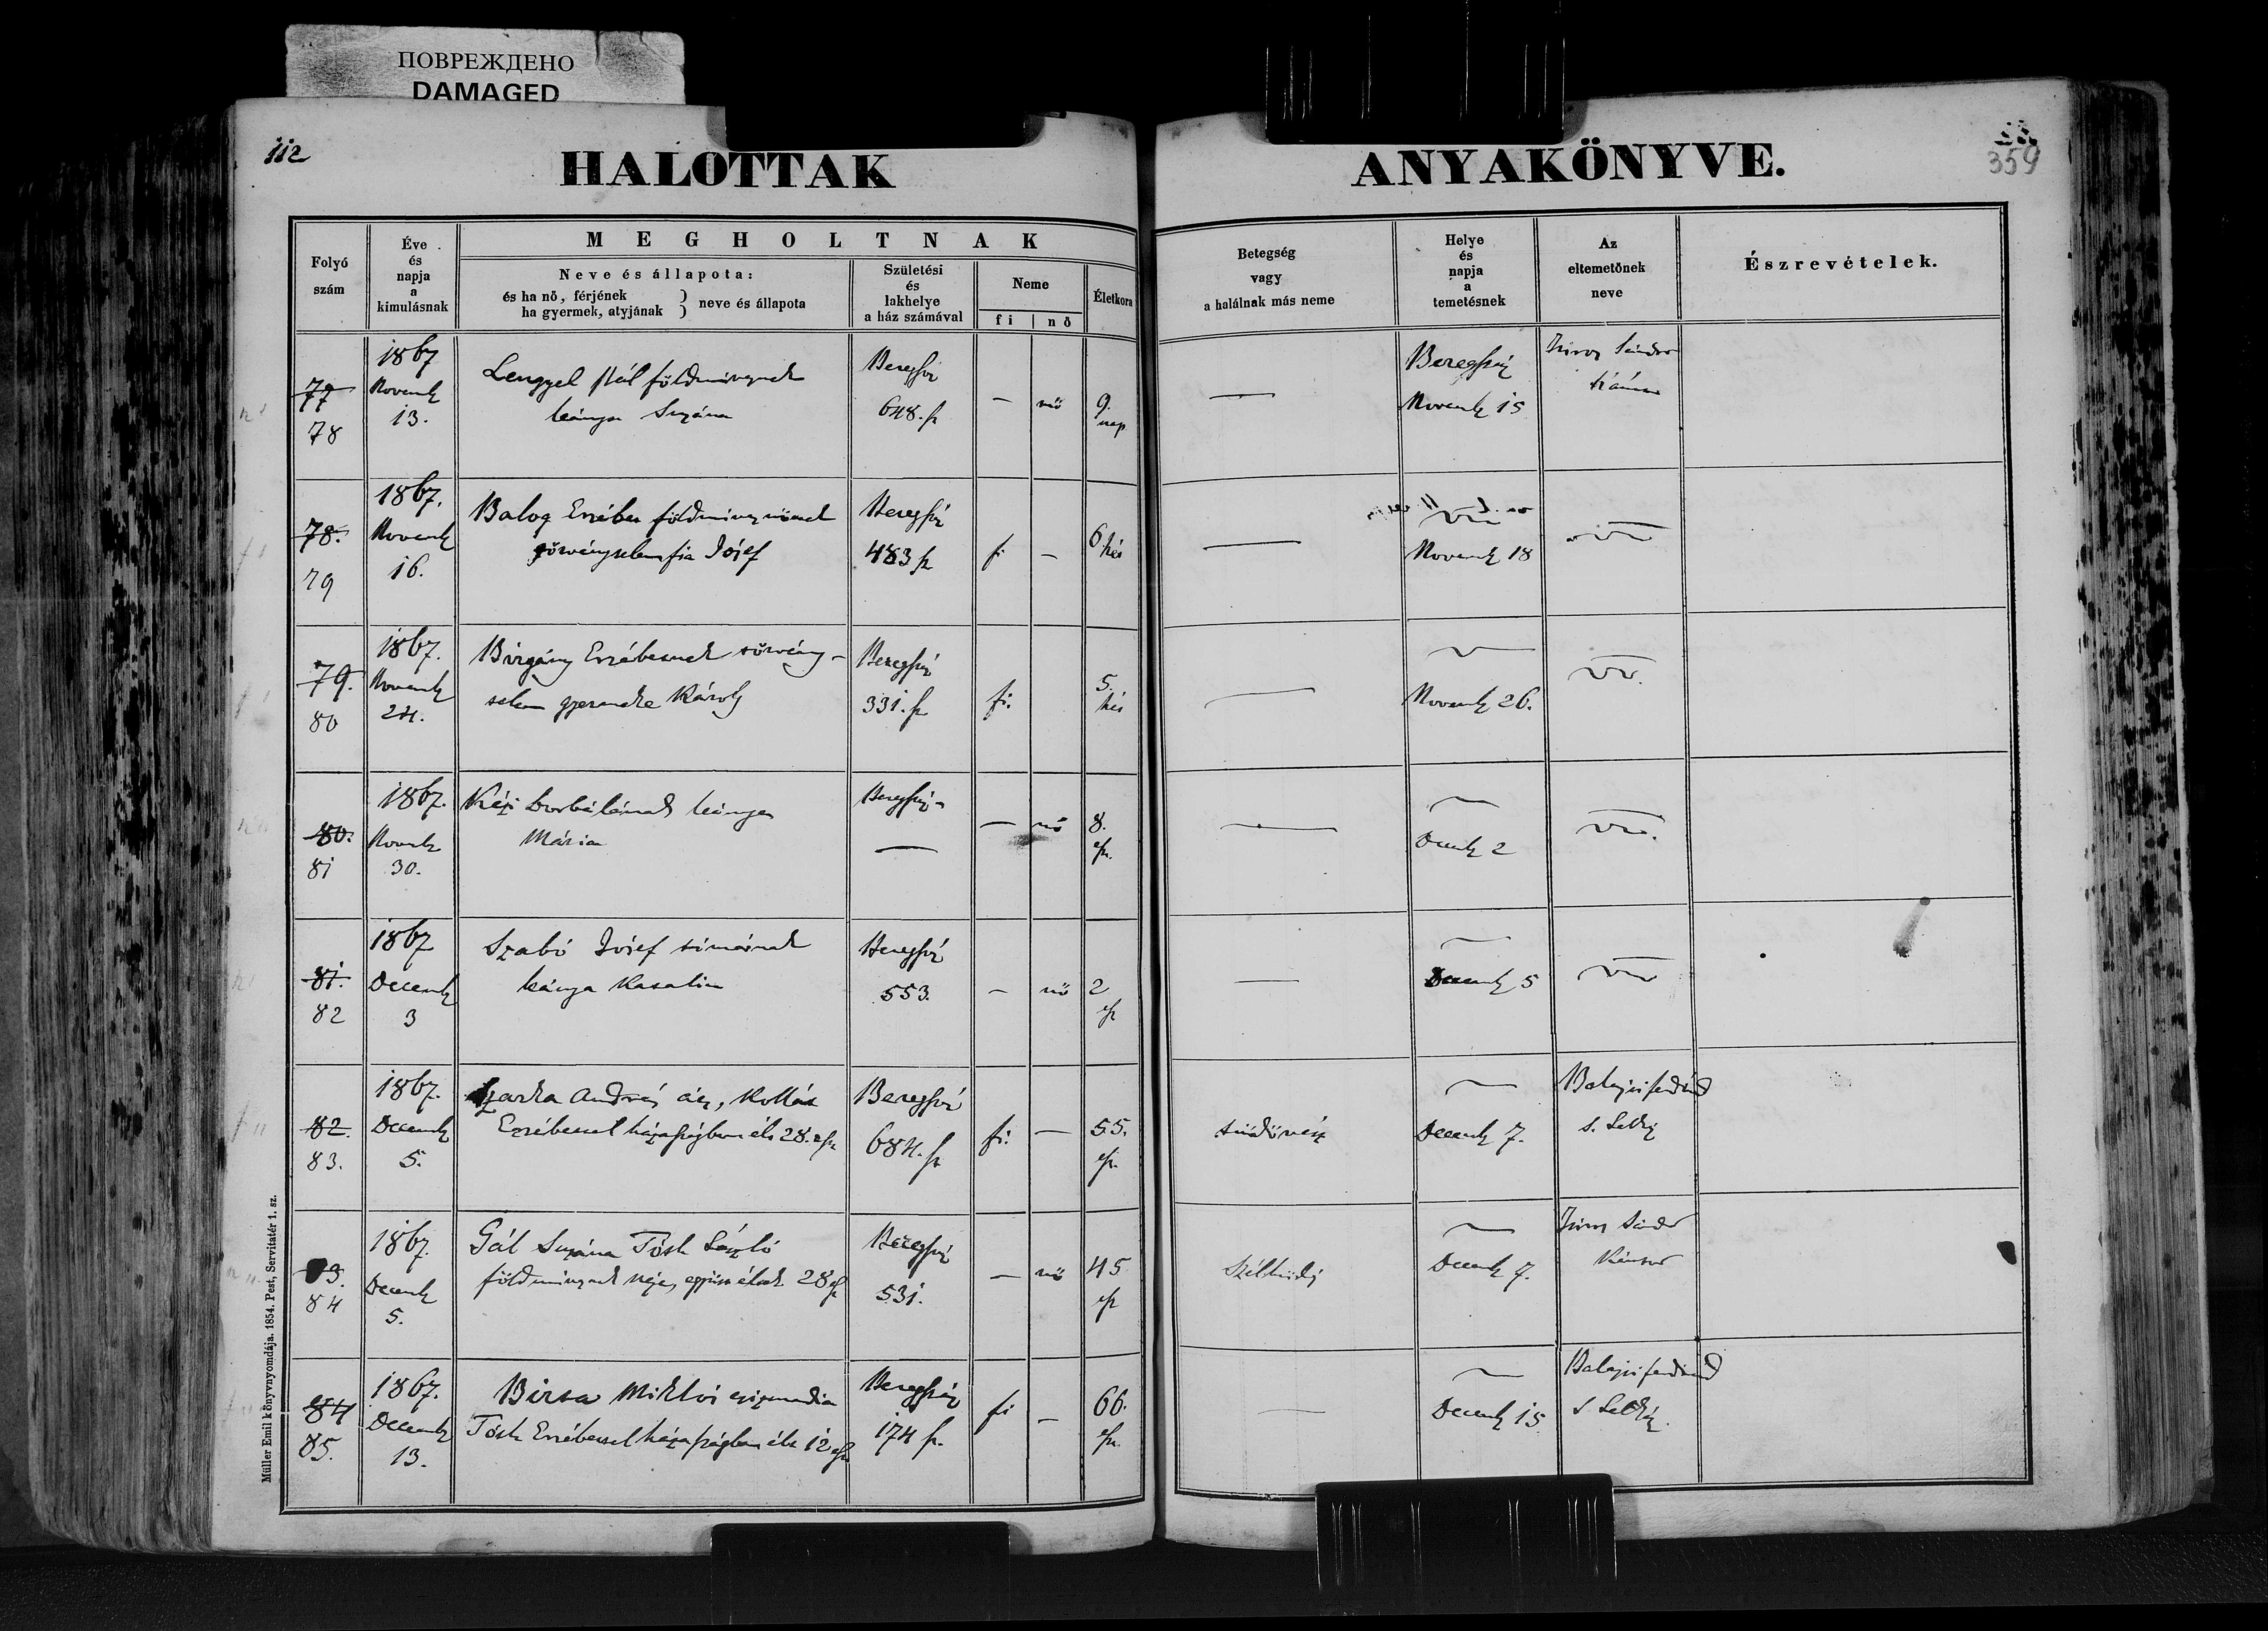 ПОВРЕЖДЕНО
DAMAGED
112
HALOTTAK
ANYAKÖNYVE.
359
Folyó
szám
Éve
és
napja
a
kimulásnak
MEGHOLTNAK
Neve és állapota:
és ha nő, férjének
ha gyermek, atyjának
neve és állapota
Születési
és
lakhelye
a ház számával
Neme
fi | nő
Életkora
Betegség
vagy
a halálnak más neme
Helye
és
napja
a
temetésnek
Az
eltemetőnek
neve
Észrevételek.
77
78
1867
Novemb
13.
Lengyel Pál földmivesnek
leánya Suzána
Beregszáz
648. sz
— nő
9.
nap
—
Beregszáz
Novemb 15
Sándor
78.
79
1867.
Novemb
16.
Balog Erzébet földmives nőnek
törvénytelen fia Jósef
Beregszáz
483 sz
fi —
6 hét
—
Novemb 18
79.
80
1867.
Novemb
24.
Birgány Erzébetnek törvény-
telen gyermeke Károly
Beregszáz
331. sz
fi.
5.
hét
—
Novemb 26.
80.
81
1867.
Novemb
30.
Borbálának leánya
Mária
Beregszáz
—
— nő
8.
esz.
—
Decemb 2
81.
82
1867
Decemb
3
Szabó Jósef timárnak
leánya Katalin
Beregszáz
553.
— nő
2
esz
—
Decemb 5
82.
83.
1867.
Decemb
5.
Szarka András ács, Kollát
Erzébettel házasságban élt 28. esz
Beregszáz
684. sz
fi. —
55.
esz.
tüdővész
Decemb 7.
Balajti Ferdinánd
s. Lelkész
83.
84
1867.
Decemb
5.
Gál Suzána Tóth László
földmivesnek neje, együtt éltek 28 esz
Beregszáz
531.
— nő
45
esz
Szélhüdés
Decemb 7.
Sándor
Kántor
84
85.
1867.
Decemb
13.
Birta Miklós csizmadia
Tóth Erzébettel házasságban élt 12 esz
Beregszáz
174 sz.
fi —
66.
esz.
—
Decemb 15
Balajti Ferdinánd
s. Lelkész.
Müller Emil könyvnyomdája. 1854. Pest, Servitatér 1. sz.